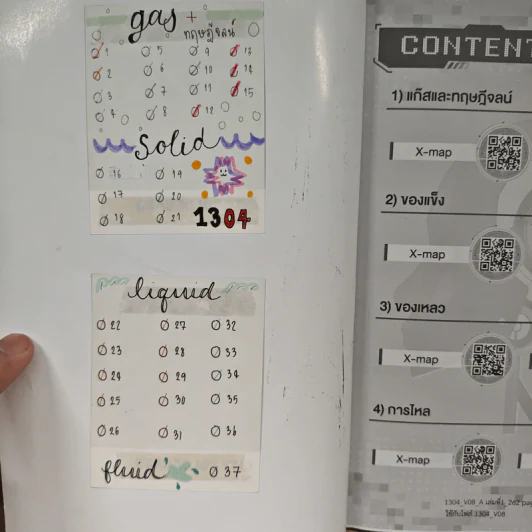 gas +
ทฤษฎีจลน์
1 5 9 13
2 6 10 14
3 7 11 15
4 8 12
Solid
16 19
17 20
18 21 1304
liquid
22 27 32
23 28 33
24 29 34
25 30 35
26 31 36
fluid 37
CONTENT
1) แก๊สและทฤษฎีจลน์
X-map
2) ของแข็ง
X-map
3) ของเหลว
X-map
4) การไหล
X-map
1304_V08_A เล่มที่1_262 pag
1304_V08